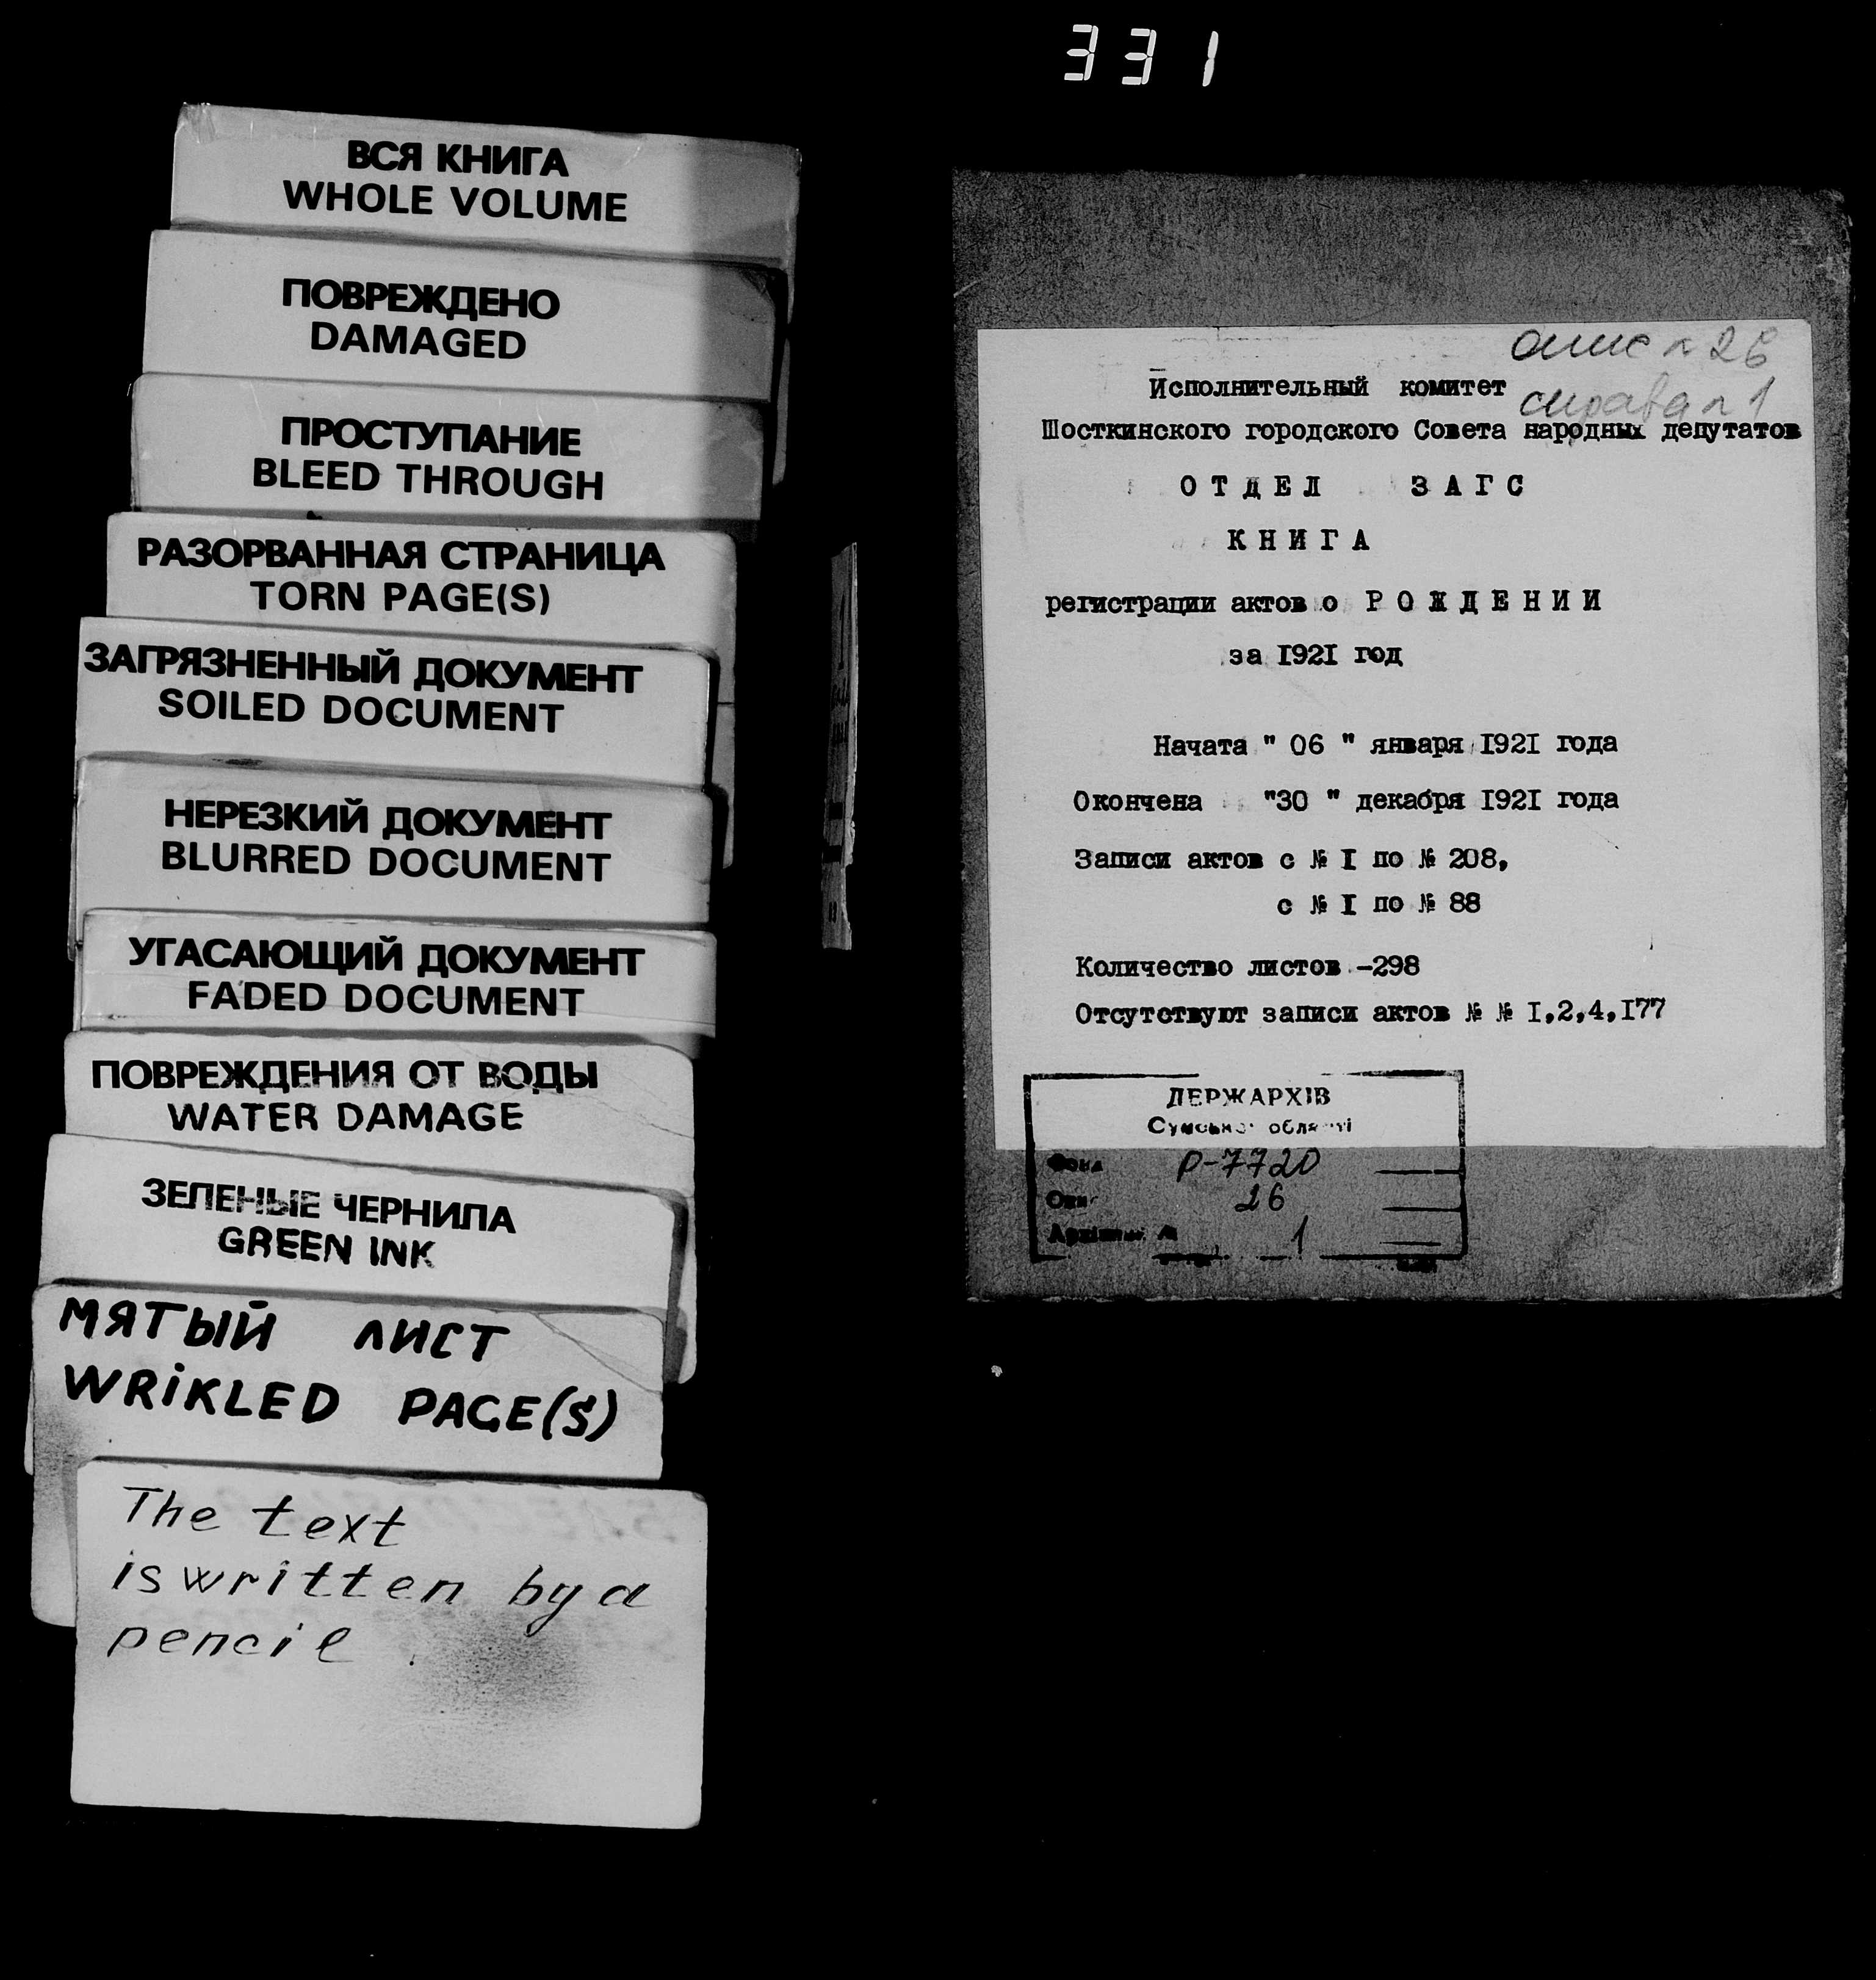 331
ВСЯ КНИГА
WHOLE VOLUME
ПОВРЕЖДЕНО
DAMAGED
ПРОСТУПАНИЕ
BLEED THROUGH
РАЗОРВАННАЯ СТРАНИЦА
TORN PAGE(S)
ЗАГРЯЗНЕННЫЙ ДОКУМЕНТ
SOILED DOCUMENT
НЕРЕЗКИЙ ДОКУМЕНТ
BLURRED DOCUMENT
УГАСАЮЩИЙ ДОКУМЕНТ
FADED DOCUMENT
ПОВРЕЖДЕНИЯ ОТ ВОДЫ
WATER DAMAGE
ЗЕЛЕНЫЕ ЧЕРНИЛА
GREEN INK
МЯТЫЙ ЛИСТ
WRIKLED PAGE(S)
The text
is written by a
pencil.
опис № 26
Исполнительный комитет
справа № 1
Шосткинского городского Совета народных депутатов
ОТДЕЛ ЗАГС
КНИГА
регистрации актов о РОЖДЕНИИ
за I92I год
Начата " 06 " января I92I года
Окончена "30 " декабря I92I года
Записи актов с № I по № 208,
с № I по № 88
Количество листов -298
Отсутствуют записи актов № № I,2,4,I77
ДЕРЖАРХІВ
Сумської області
Фонд Р-7720
Опис 26
1